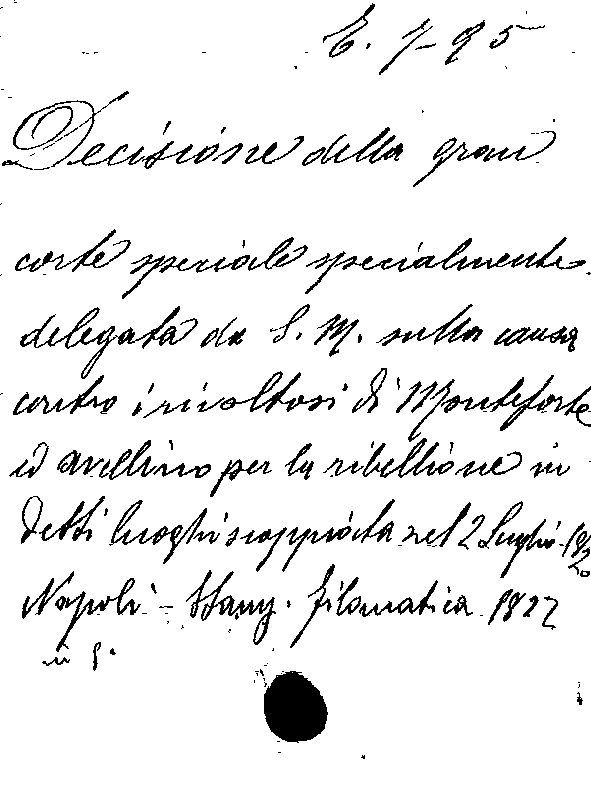 E. 7-95
Decisione della gran
corte speciale specialmente
delegata da S. M. sulla causa
contro i rivoltosi di Monteforte
ed avellino per la ribellione in
detti luoghi scoppiata nel 2 Luglio 1820
Napoli - Stamp. filomatica 1822
in 8°